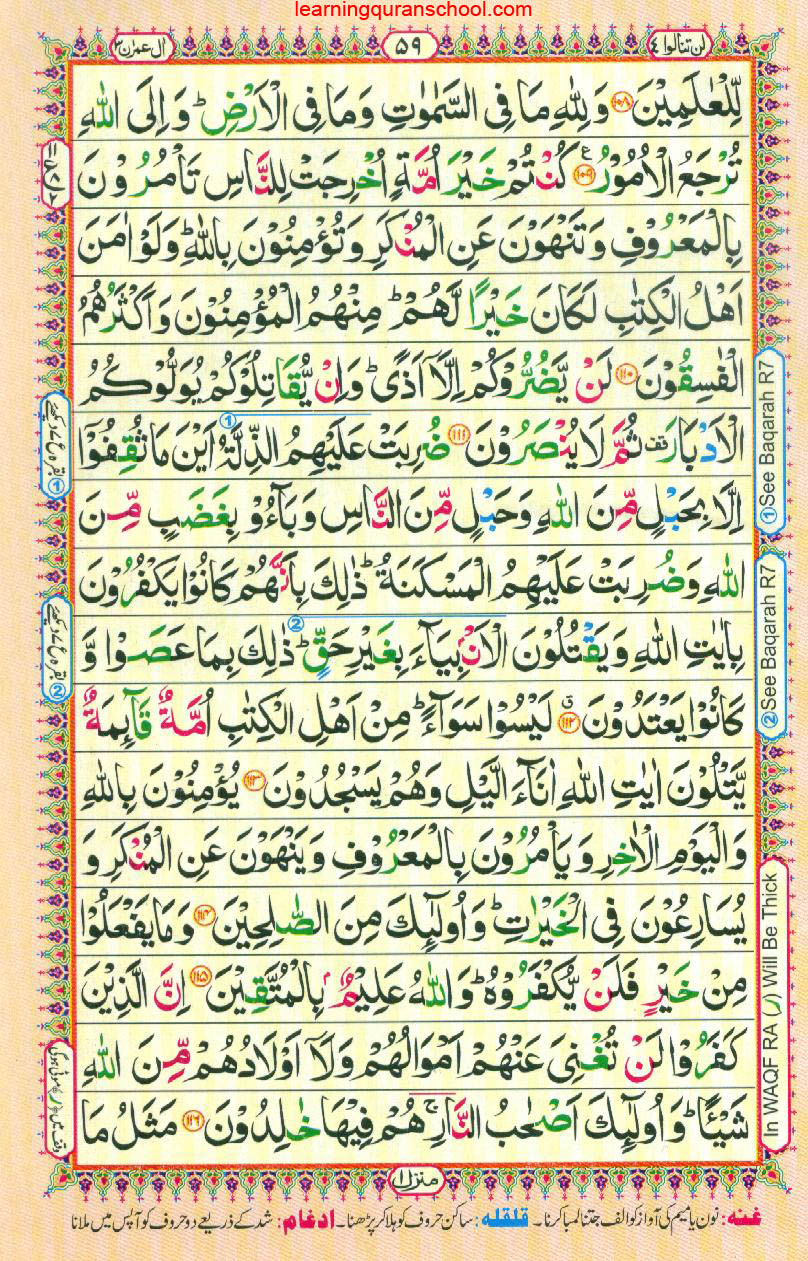 learningquranschool.com
لن تنالوا ٤
٥٩
اٰل عمرٰن ٣
لِّلْعٰلَمِيْنَ ۝١٠٨ وَلِلّٰهِ مَا فِى السَّمٰوٰتِ وَمَا فِى الْاَرْضِ ؕ وَاِلَى اللّٰهِ
تُرْجَعُ الْاُمُوْرُ ۝١٠٩ ع كُنْتُمْ خَيْرَ اُمَّةٍ اُخْرِجَتْ لِلنَّاسِ تَاْمُرُوْنَ
بِالْمَعْرُوْفِ وَتَنْهَوْنَ عَنِ الْمُنْكَرِ وَتُؤْمِنُوْنَ بِاللّٰهِ ؕ وَلَوْ اٰمَنَ
اَهْلُ الْكِتٰبِ لَكَانَ خَيْرًا لَّهُمْ ؕ مِنْهُمُ الْمُؤْمِنُوْنَ وَاَكْثَرُهُمُ
الْفٰسِقُوْنَ ۝١١٠ لَنْ يَّضُرُّوْكُمْ اِلَّاۤ اَذًى ؕ وَاِنْ يُّقَاتِلُوْكُمْ يُوَلُّوْكُمُ
الْاَدْبَارَ قف ثُمَّ لَا يُنْصَرُوْنَ ۝١١١ ضُرِبَتْ عَلَيْهِمُ الذِّلَّةُ اَيْنَ مَا ثُقِفُوْۤا
اِلَّا بِحَبْلٍ مِّنَ اللّٰهِ وَحَبْلٍ مِّنَ النَّاسِ وَبَآءُوْ بِغَضَبٍ مِّنَ
اللّٰهِ وَضُرِبَتْ عَلَيْهِمُ الْمَسْكَنَةُ ؕ ذٰلِكَ بِاَنَّهُمْ كَانُوْا يَكْفُرُوْنَ
بِاٰيٰتِ اللّٰهِ وَيَقْتُلُوْنَ الْاَنْۢبِيَآءَ بِغَيْرِ حَقٍّ ؕ ذٰلِكَ بِمَا عَصَوْا وَّ
كَانُوْا يَعْتَدُوْنَ ۝١١٢ ق لَيْسُوْا سَوَآءً ؕ مِنْ اَهْلِ الْكِتٰبِ اُمَّةٌ قَآئِمَةٌ
يَّتْلُوْنَ اٰيٰتِ اللّٰهِ اٰنَآءَ الَّيْلِ وَهُمْ يَسْجُدُوْنَ ۝١١٣ يُؤْمِنُوْنَ بِاللّٰهِ
وَالْيَوْمِ الْاٰخِرِ وَيَاْمُرُوْنَ بِالْمَعْرُوْفِ وَيَنْهَوْنَ عَنِ الْمُنْكَرِ وَ
يُسَارِعُوْنَ فِى الْخَيْرٰتِ ؕ وَاُولٰٓئِكَ مِنَ الصّٰلِحِيْنَ ۝١١٤ وَمَا يَفْعَلُوْا
مِنْ خَيْرٍ فَلَنْ يُّكْفَرُوْهُ ؕ وَاللّٰهُ عَلِيْمٌۢ بِالْمُتَّقِيْنَ ۝١١٥ اِنَّ الَّذِيْنَ
كَفَرُوْا لَنْ تُغْنِىَ عَنْهُمْ اَمْوَالُهُمْ وَلَاۤ اَوْلَادُهُمْ مِّنَ اللّٰهِ
شَيْئًا ؕ وَاُولٰٓئِكَ اَصْحٰبُ النَّارِ ۚ هُمْ فِيْهَا خٰلِدُوْنَ ۝١١٦ مَثَلُ مَا
① See Baqarah R7
② See Baqarah R7
In WAQF RA (ر) Will Be Thick
① بقرہ ع ۷ دیکھئے
② بقرہ ع ۷ دیکھئے
وقف میں (ر) موٹی ہوگی
منزل ١
غنه: نون یا میم کی آواز کو الف جتنا لمبا کرنا۔ قلقله: ساکن حروف کو ہلا کر پڑھنا۔ ادغام: شد کے ذریعے دو حروف کو آپس میں ملانا